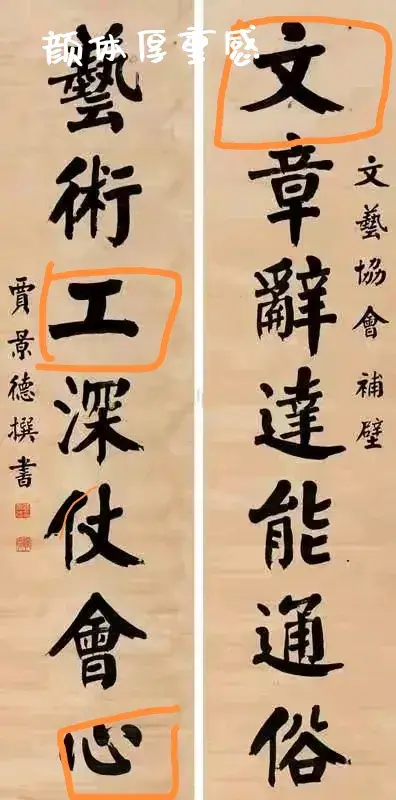 颜体厚重感
文章辭達能通俗
文藝協會補壁
藝術工深仗會心
賈景德撰書